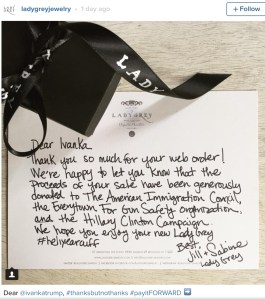 ladygreyjewelry • 1 day ago
Follow
LADYGREY
Dear Ivanka
Thank you so much for your web order!
We're happy to let you know that the
Proceeds of your sale have been generously
donated to The American Immigration Council,
the Everytown For Gun Safety Organization,
and the Hillary Clinton Campaign.
We hope you enjoy your new LadyGrey
#helixearcuff
Best,
Jill + Sabine
Lady Grey
Dear @ivankatrump, #thanksbutnothanks #payitFORWARD